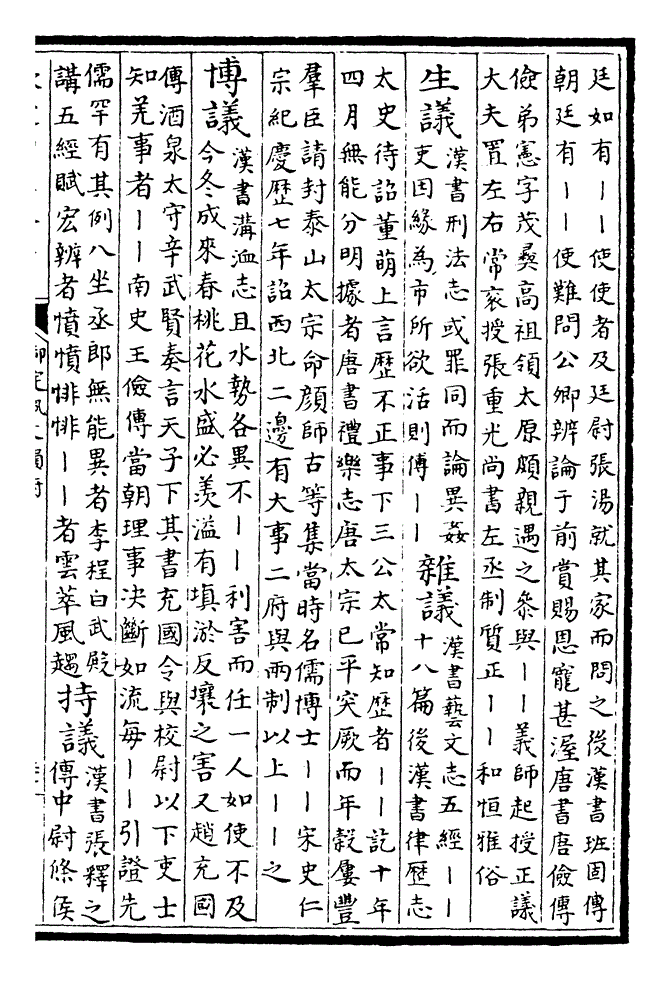 廷如有丨丨使使者及廷尉張湯就其家而問之後漢書班固傳
朝廷有丨丨使難問公卿辨論于前賞賜恩寵甚渥唐書唐儉傳
儉弟憲字茂彛高祖領太原頗親遇之叅與丨丨義師起授正議
大夫置左右常衮授張重光尚書左丞制質正丨丨和恒雅俗
生議
漢書刑法志或罪同而論異姦
吏因緣為市所欲活則傅丨丨
雜議
漢書藝文志五經丨丨
十八篇後漢書律歴志
太史待詔董萌上言歴不正事下三公太常知歴者丨丨訖十年
四月無能分明據者唐書禮樂志唐太宗已平突厥而年穀屢豐
羣臣請封泰山太宗命顔師古等集當時名儒博士丨丨宋史仁
宗紀慶歴七年詔西北二邊有大事二府與兩制以上丨丨之
博議
漢書溝洫志且水勢各異不丨丨利害而任一人如使不及
今冬成來春桃花水盛必羨溢有填淤反壞之害又趙充國
傳酒泉太守辛武賢奏言天子下其書充國令與校尉以下吏士
知羌事者丨丨南史王儉傳當朝理事決斷如流每丨丨引證先
儒罕有其例八坐丞郎無能異者李程白武殿
講五經賦宏辨者憤憤悱悱丨丨者雲萃風趨
持議
漢書張釋之
傳中尉條侯